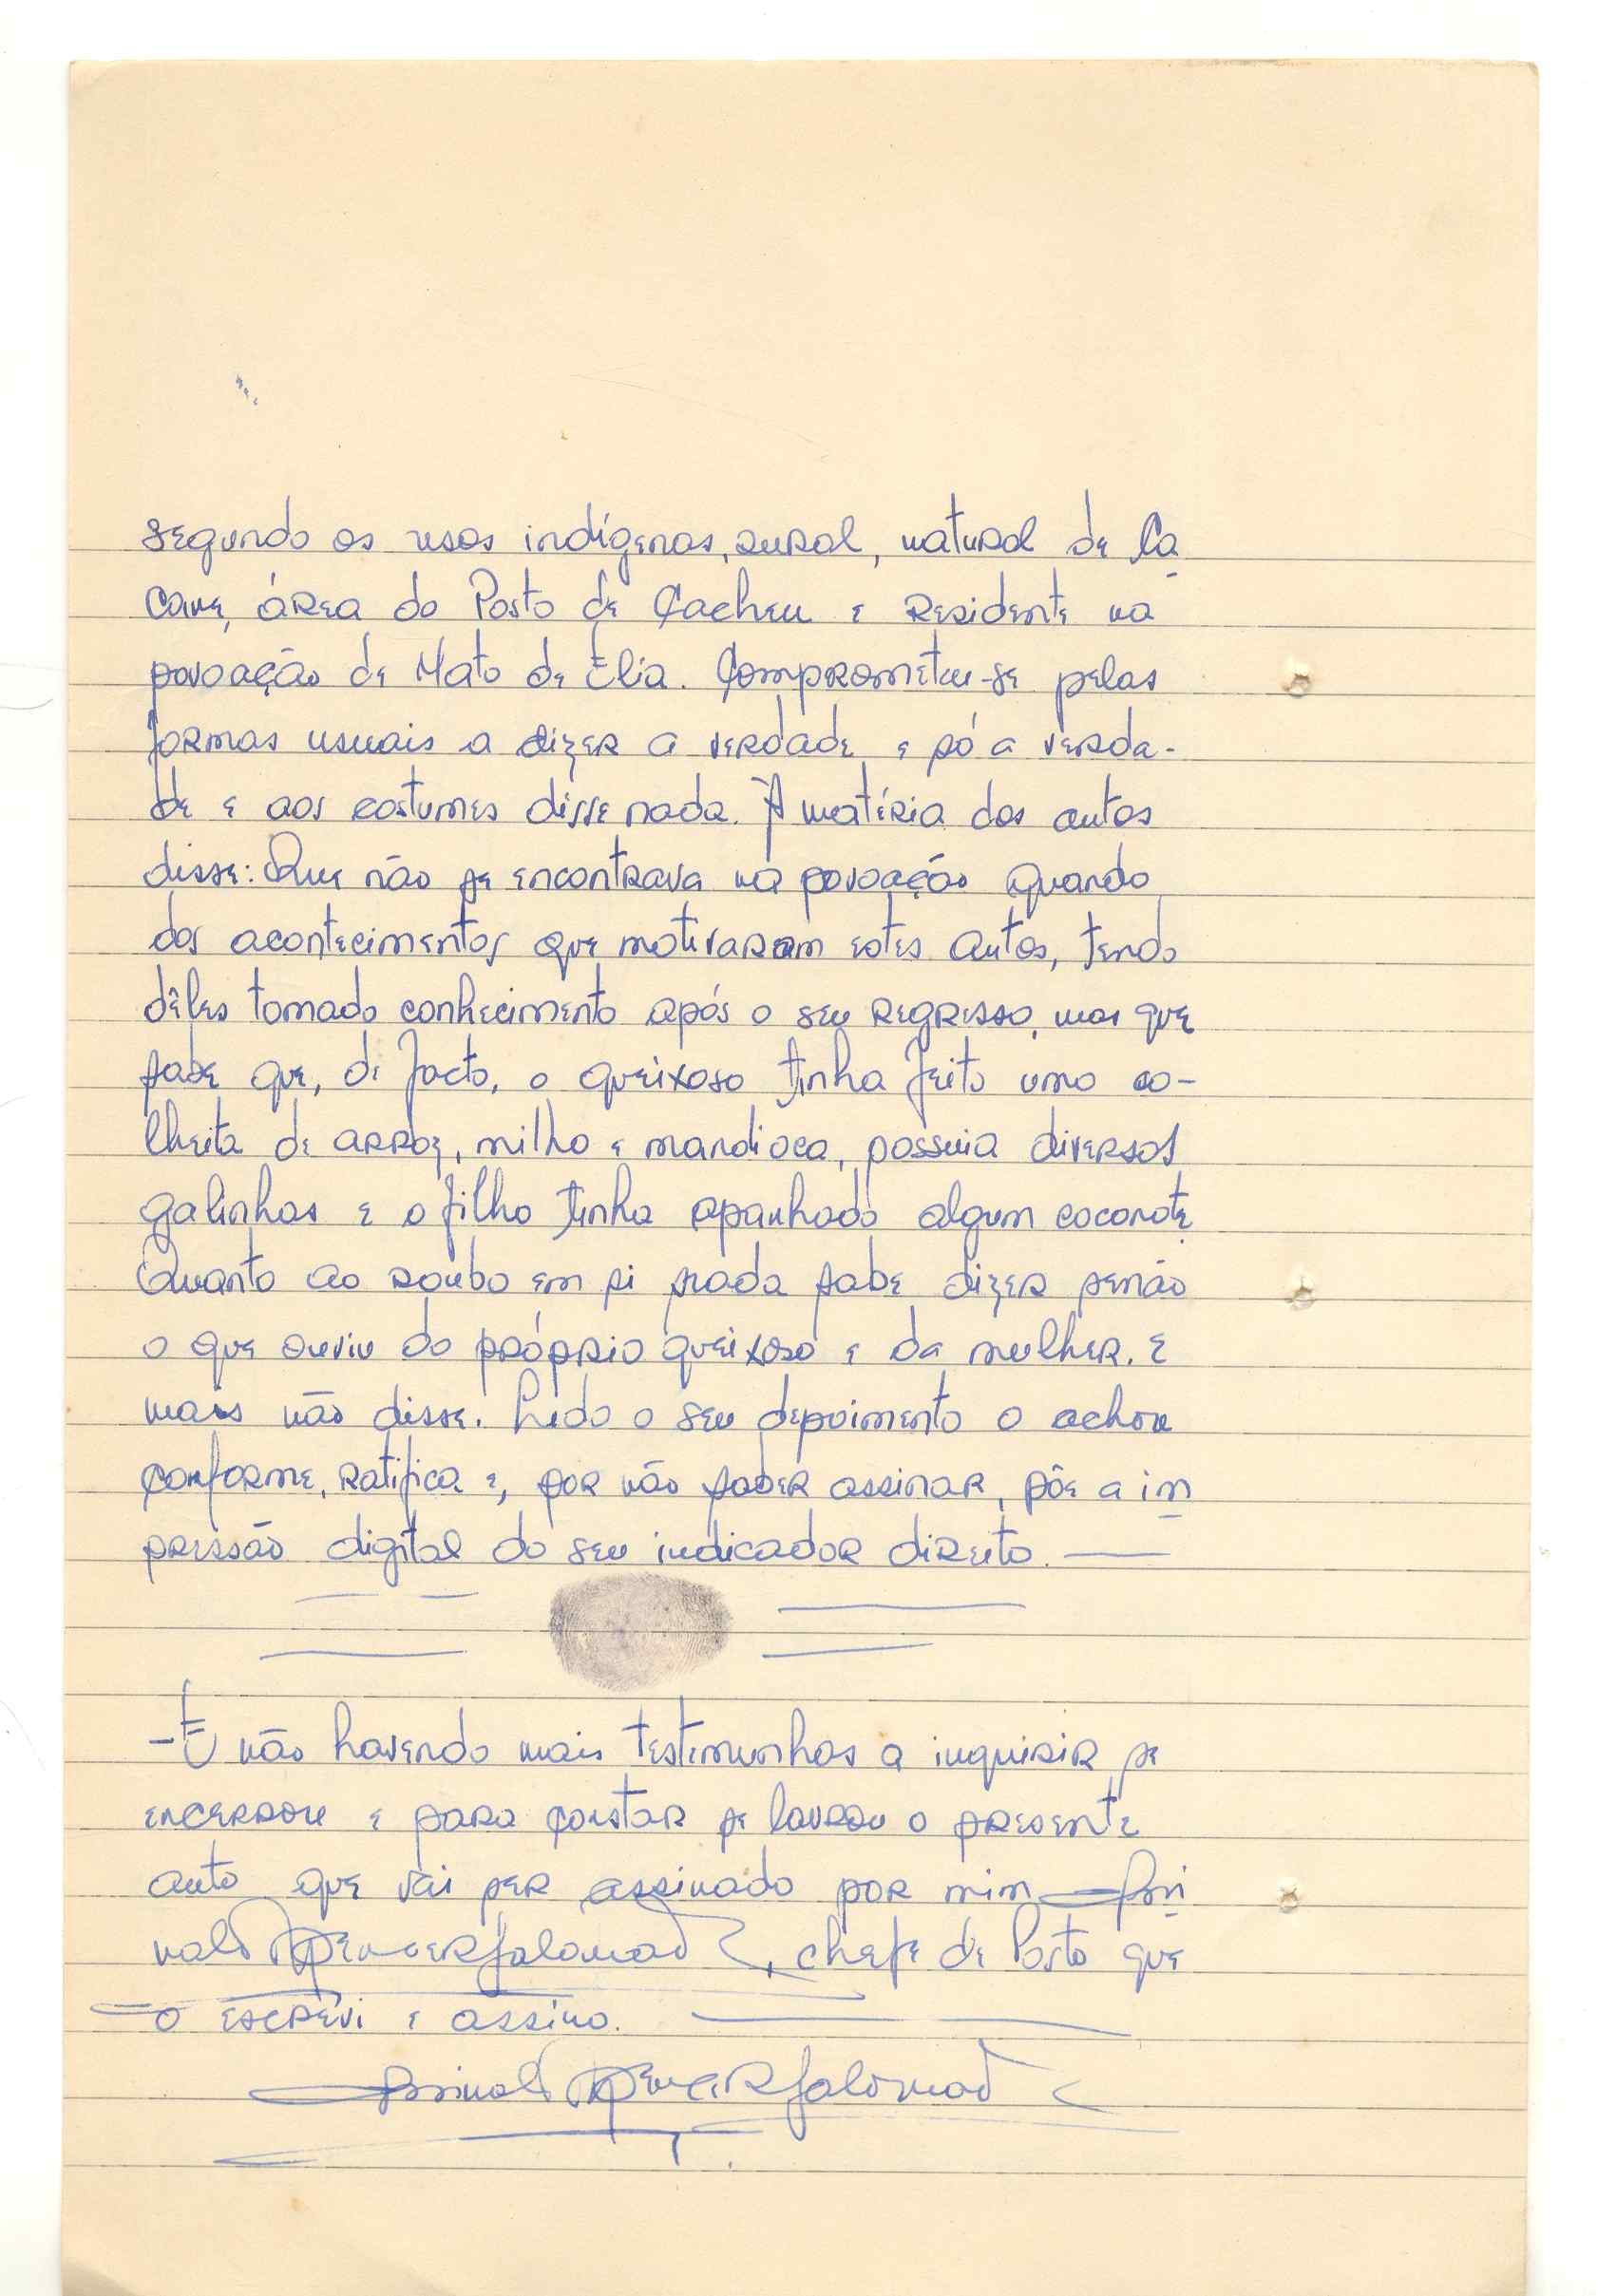 segundo os usos indígenas, rural, natural de Ca
cane, área do Posto de Cacheu e residente na
povoação de Mato de Elia. Comprometeu-se pelas
formas usuais a dizer a verdade e só a verda-
de e aos costumes disse nada. À matéria dos autos
disse: Que não se encontrava na povoação quando
dos acontecimentos que motivaram estes autos, tendo
dêles tomado conhecimento após o seu regresso, mas que
sabe que, de facto, o queixoso tinha feito uma co-
lheita de arroz, milho e mandioca, possuia diversas
galinhas e o filho tinha apanhado algum coconote.
Quanto ao roubo em si nada sabe dizer senão
o que ouviu do próprio queixoso e da mulher. E
mais não disse. Lido o seu depoimento o achou
conforme, ratifica e, por não saber assinar, põe a im
pressão digital do seu indicador direito.
-E não havendo mais testemunhas a inquirir se
encerrou e para constar se lavrou o presente
auto que vai ser assinado por mim
, chefe de Posto que
o escrevi e assino.